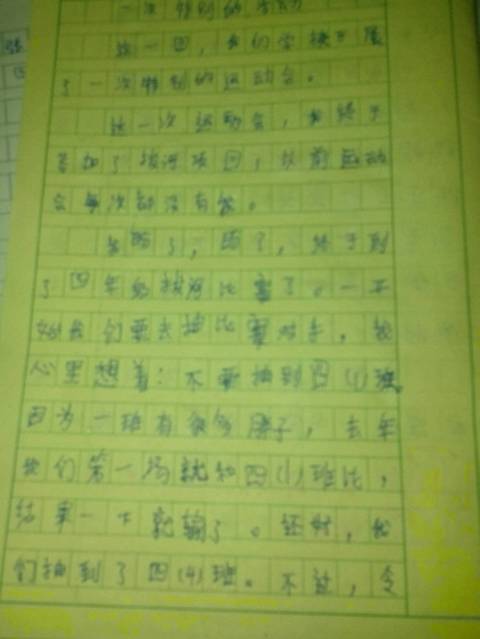 一次特别的运动
周一四,我们学校开展
了一次特别的运动会。
这一次运动会,我终于
参加了拔河项目,以前运动
会每次都没有我。
到了,终于到
了四年级拔河比赛了。一开
始我们要去抽比赛对手,我
心里想着:不要抽到四(1)班
因为一班有很多胖子,去年
我们第一场就和四(1)班比,
结果一下就输了。还好,我
们抽到了四(4)班。不过,令